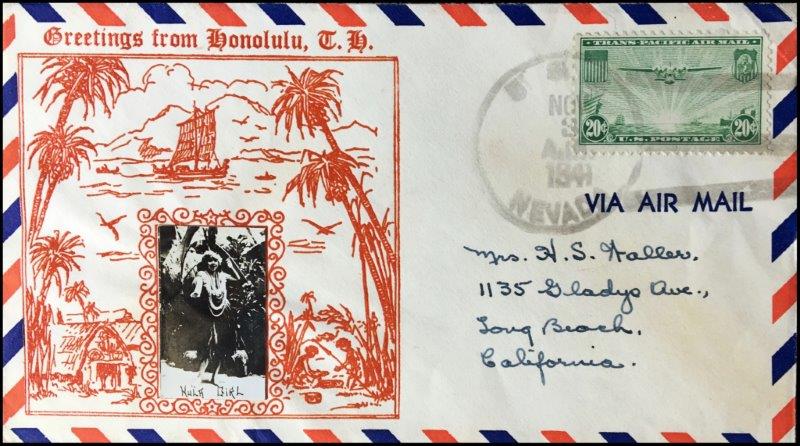 Greetings from Honolulu, T. H.
HULA GIRL
TRANS-PACIFIC AIR MAIL
20¢ 20¢
U.S. POSTAGE
1941
VIA AIR MAIL
Mrs. H. S. Waller,
1135 Gladys Ave.,
Long Beach,
California.